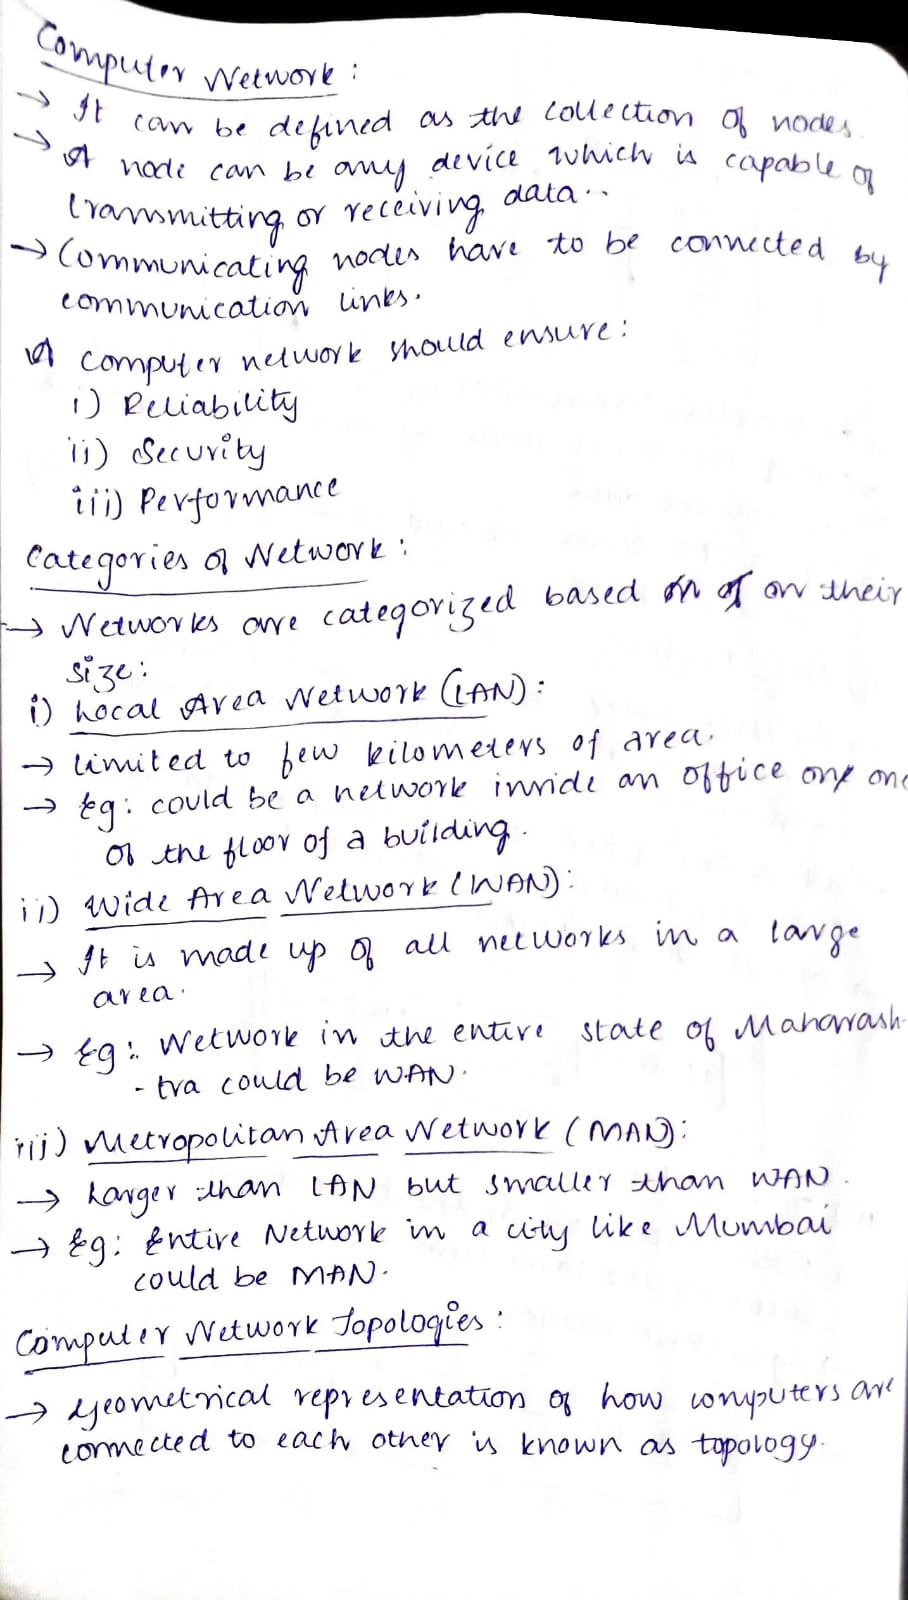 Computer Network:
→ It can be defined as the collection of nodes
→ A node can be any device which is capable of
transmitting or receiving data..
→ Communicating nodes have to be connected by
communication links.
A computer network should ensure:
i) Reliability
ii) Security
iii) Performance
Categories of Network:
→ Networks are categorized based on their
size:
i) Local Area Network (LAN):
→ Limited to few kilometers of area.
→ Eg: could be a network inside an office one
of the floor of a building.
ii) Wide Area Network (WAN):
→ It is made up of all networks in a large
area.
→ Eg: Network in the entire state of Maharash-
-tra could be WAN.
iii) Metropolitan Area Network (MAN):
→ Larger than LAN but smaller than WAN.
→ Eg: Entire Network in a city like Mumbai
could be MAN.
Computer Network Topologies:
→ Geometrical representation of how computers are
connected to each other is known as topology.